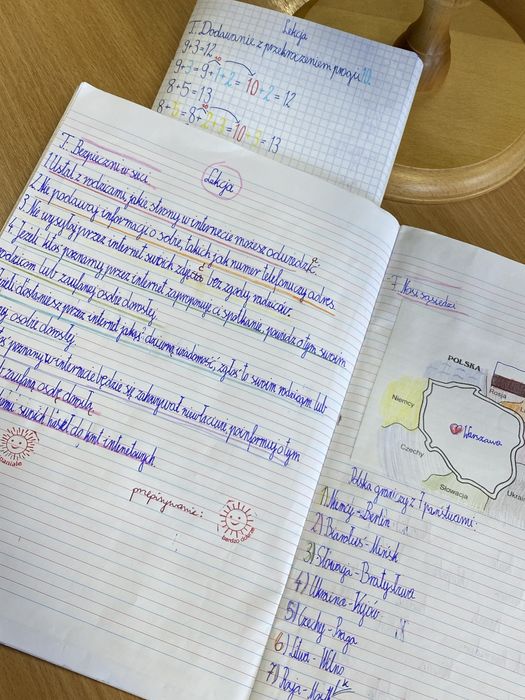 Lekcja
T: Dodawanie z przekroczeniem progu 10.
9+3=12
9+3=9+1+2=10+2=12
8+5=13
8+5=8+2+3=10+3=13
Lekcja
T: Bezpieczni w sieci.
1. Ustal z rodzicami, jakie strony w internecie możesz odwiedzać.
2. Nie podawaj informacji o sobie, takich jak numer telefonu czy adres.
3. Nie wysyłaj przez internet swoich zdjęć bez zgody rodziców.
4. Jeżeli ktoś poznany przez internet zaproponuje ci spotkanie, powiedz o tym swoim
rodzicom lub zaufanej osobie dorosłej.
dostaniesz przez internet jakąś dziwną wiadomość, zgłoś to swoim rodzicom lub
osobie dorosłej.
poznany w internecie będzie się zachowywał niewłaściwie, poinformuj o tym
zaufaną osobę dorosłą.
swoich haseł do kont internetowych.
przepisywanie:
bardzo dobrze
T: Nasi sąsiedzi
POLSKA
Rosja
Niemcy
Warszawa
Czechy
Słowacja
Ukra
Polska graniczy z 7 państwami:
1) Niemcy - Berlin
2) Białoruś - Mińsk
3) Słowacja - Bratysława
4) Ukraina - Kijów
5) Czechy - Praga
6) Litwa - Wilno
7) Rosja -